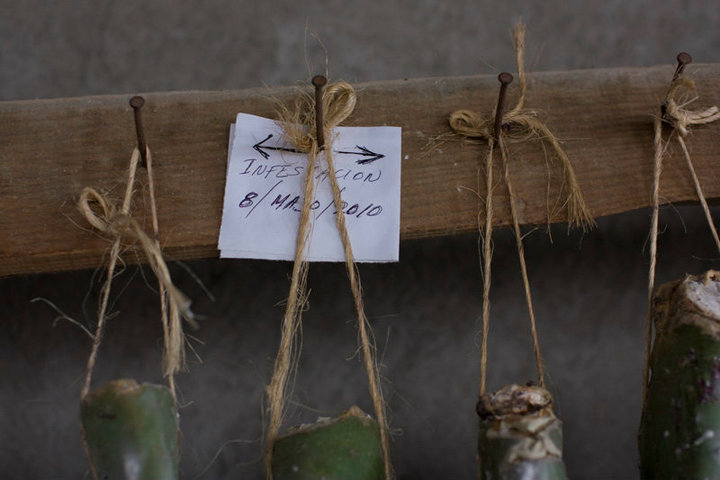 INFESTACION
8/MAJO/2010